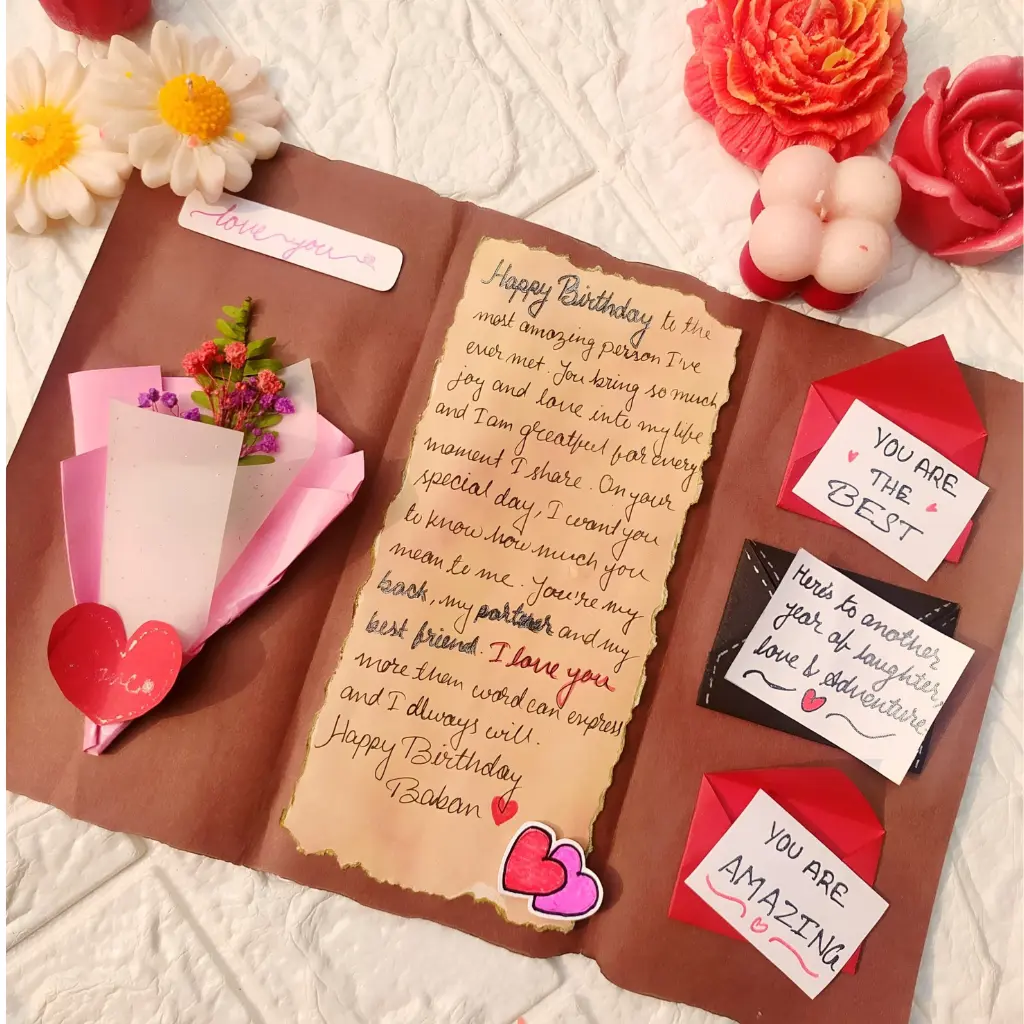 love you
Happy Birthday to the
most amazing person I've
ever met. You bring so much
joy and love into my life
and I am greatful for every
moment I share. On your
special day, I want you
to know how much you
mean to me. You're my
back, my partner and my
best friend. I love you
more them word can express
and I always will.
Happy Birthday
Baban
YOU ARE
THE
BEST
Here's to another
year of laughter,
love & Adventure
YOU ARE
AMAZING